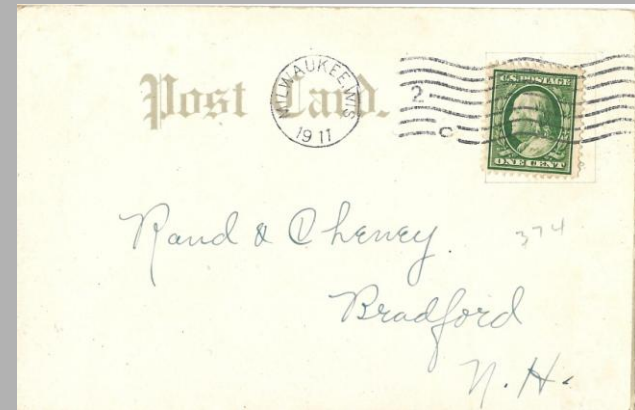 Post Card.
MILWAUKEE, WIS
1911
2
C
U.S. POSTAGE
ONE CENT
Rand & Cheney.
374
Bradford
N. H.